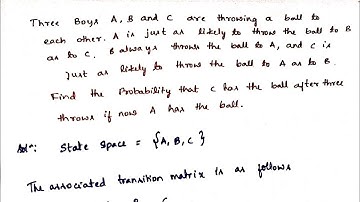 Three Boys A, B and C are throwing a ball to
each other. A is just as likely to throw the ball to B
as to C. B always throws the ball to A, and C is
Just as likely to throw the ball to A as to B.
Find the Probability that C has the ball after three
throws if now A has the ball.
Solⁿ: State Space = {A, B, C}
The associated transition matrix is as follows